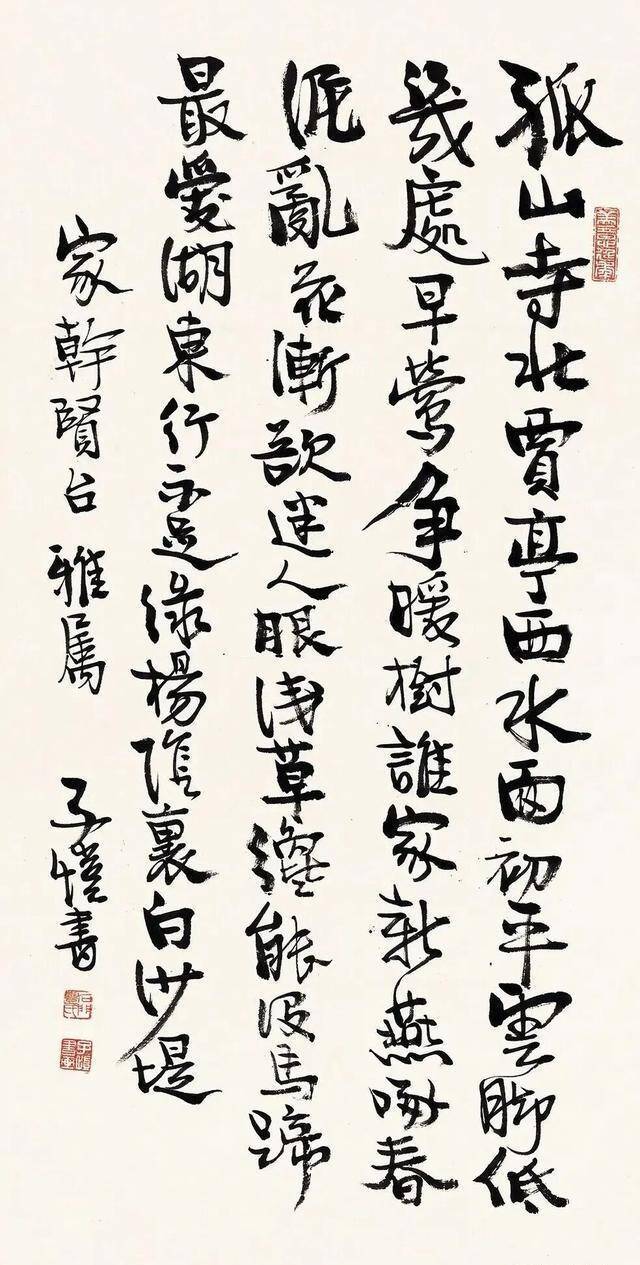 孤山寺北賈亭西水面初平雲脚低
幾處早鶯爭暖樹誰家新燕啄春
泥亂花漸欲迷人眼淺草纔能沒馬蹄
最愛湖東行不足綠楊陰裏白沙堤
家幹賢台 雅屬 子愷書
石門豐氏
子愷書畫